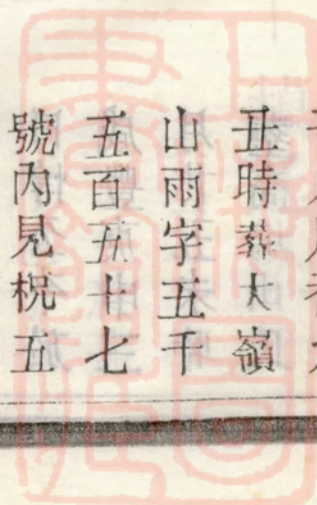 丑時葬大嶺
山雨字五千
五百五十七
號內見柷五